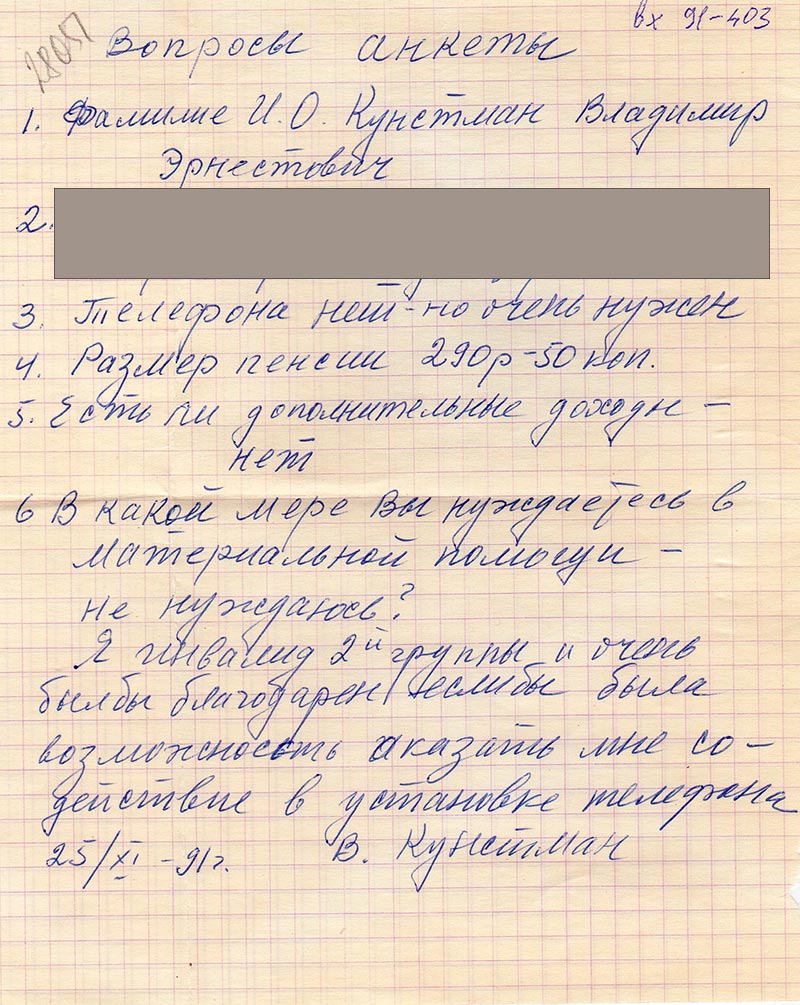 вх 91-403
28051
Вопросы анкеты
1. Фамилие И.О. Кунстман Владимир
Эрнестович
2.
3. Телефона нет - но очень нужен
4. Размер пенсии 290р-50 коп.
5. Есть ли дополнительные доходы -
нет
6 В какой мере Вы нуждаетесь в
материальной помощи -
не нуждаюсь?
Я инвалид 2й группы и очень
былбы благодарен еслибы была
возможность аказать мне со-
действие в установке телефона
25/XI -91г. В. Кунстман